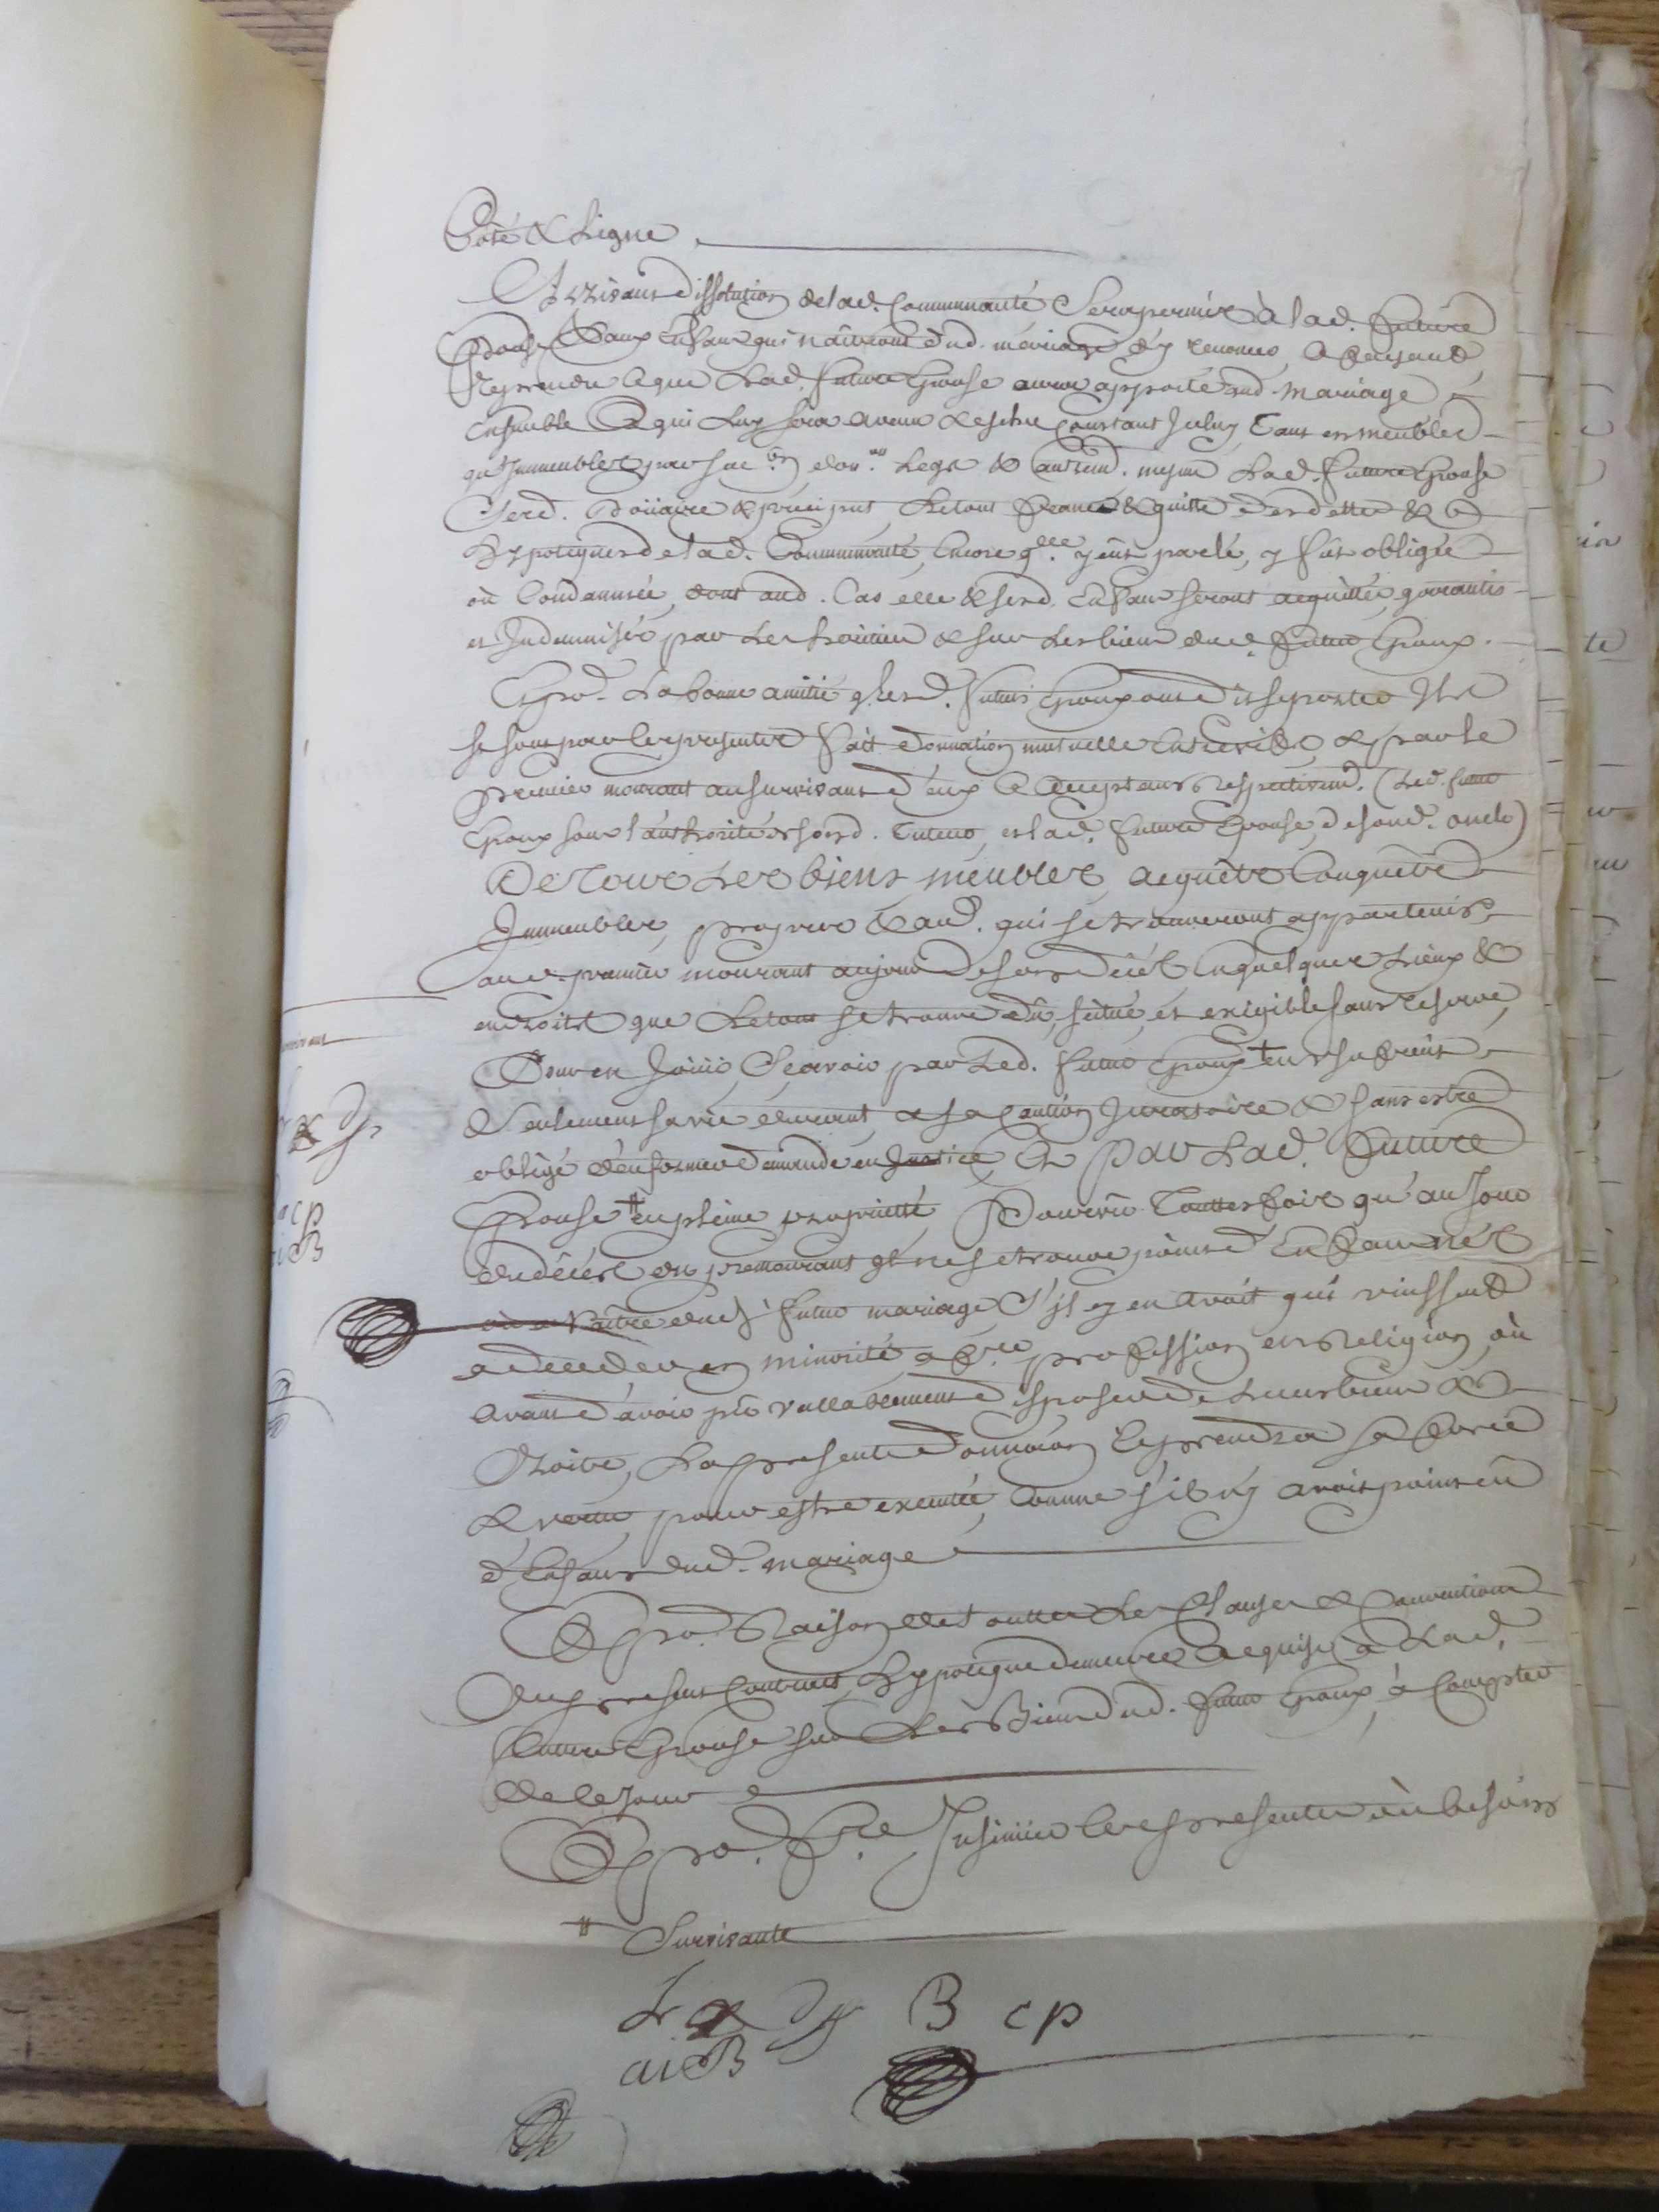 Costé & Ligne
Arrivant dissolution de lad. Communauté Sera permis à lad. future
Epouse & aux Enfans qui naîtront dud. mariage d'y renoncer, Ce faisant
Reprendre Ce que Lad. future Epouse aura apporté aud. mariage
Ensemble Ce qui Luy sera avenu & escheu Constant Iceluy, Tant en meubles
qu'Immeubles par succ.on don.on Legs & autrem.t mesme Lad. future Epouse
Sesd. Doüaire & préciput Le tout franc & quitte des dettes &
hypoteques de lad. Communauté, Encore q.elle y eût parlé, y fût obligée
où Condamnée, dont aud. Cas elle & sesd. Enfans seront acquittés, garantis
et Indemnisés par Les hoiries & sur Les biens dud. futur Epoux.
Et po.r La bonne amitié q. Lesd. futurs Epoux ont dit se porter Ils
se sont par Ces presentes fait donation mutuelle Entrevifs, & par le
premier mourant au survivant d'eux Ce acceptans respectivem.t (Led. futur
Epoux sous l'authorité de sond. Tuteur, et lad. future Epouse, de sond. oncle)
De Tous Les biens meubles, acquêts Conquêts
Immeubles, propres & au.s qui se trouveront appartenir
aud. premier mourant au jour de son décès En quelques Lieux &
endroits que Le tout se trouve dû, scitué, et exigible sans reserve,
Pour en Joüir, Sçavoir par Led. futur Epoux † en usufruit
& seulement sa vie durant, a sa Caution Juratoire & sans estre
obligé d'en former demande en Justice, Et Par Lad. Future
Epouse ‡ en pleine proprieté, Pourvû Touttesfois qu'au Jour
du décès du premourant Il ne se trouve point d'Enfans nés
où a Naitre dud. futur mariage, S'il y en avoit qui vinssent
a deceder en minorité, a f.re profession en Religion, où
avant d'avoir pû vallablement disposer de Leurs biens &
Droits, La presente donnation reprendra sa force
& vertu pour estre executée, Comme s'il n'y avoit point eû
d'Enfans dud. mariage
Et po.r Raison de touttes Les Clauses & Conventions
du present Contract, L'hypoteque demeure acquise à Lad.
future Epouse sur Les Biens dud. futur Epoux, à Compter
de Ce Jour
Et po.r f.re Insinüer Ces presentes où besoin
‡ Survivante
B cp